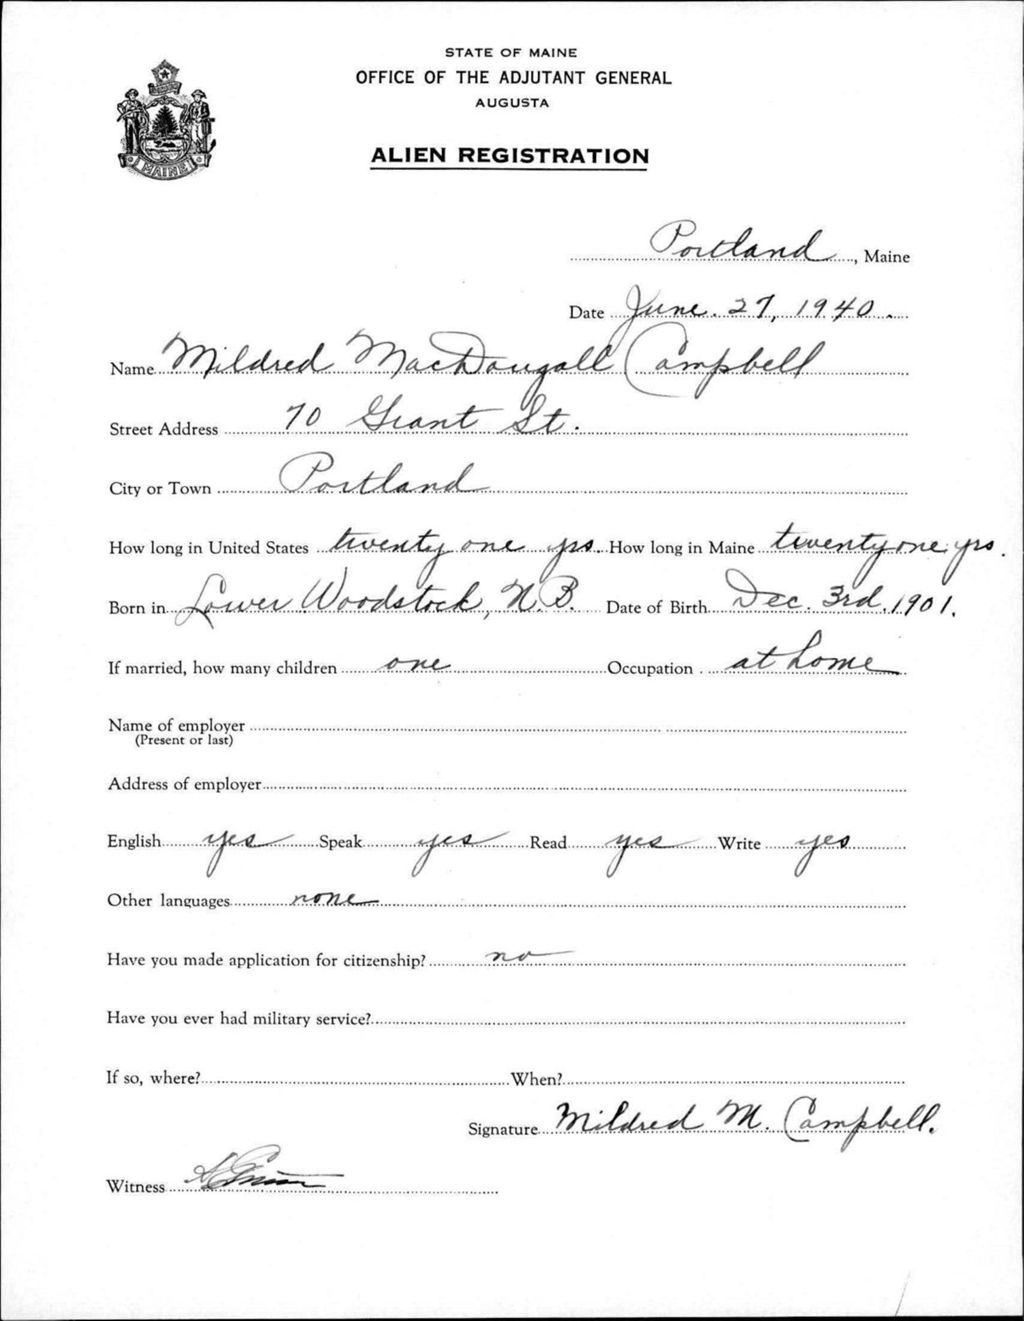 STATE OF MAINE
OFFICE OF THE ADJUTANT GENERAL
AUGUSTA
ALIEN REGISTRATION
MAINE
Portland, Maine
Date June 27, 1940.
Name Mildred MacDougall Campbell
Street Address 70 Grant St.
City or Town Portland
How long in United States twenty one yrs. How long in Maine twenty one yrs.
Born in Lower Woodstock, N.B. Date of Birth Dec. 3rd, 1901.
If married, how many children one Occupation at home
Name of employer
(Present or last)
Address of employer
English yes Speak yes Read yes Write yes
Other languages none
Have you made application for citizenship? no
Have you ever had military service?
If so, where? When?
Signature Mildred M. Campbell.
Witness